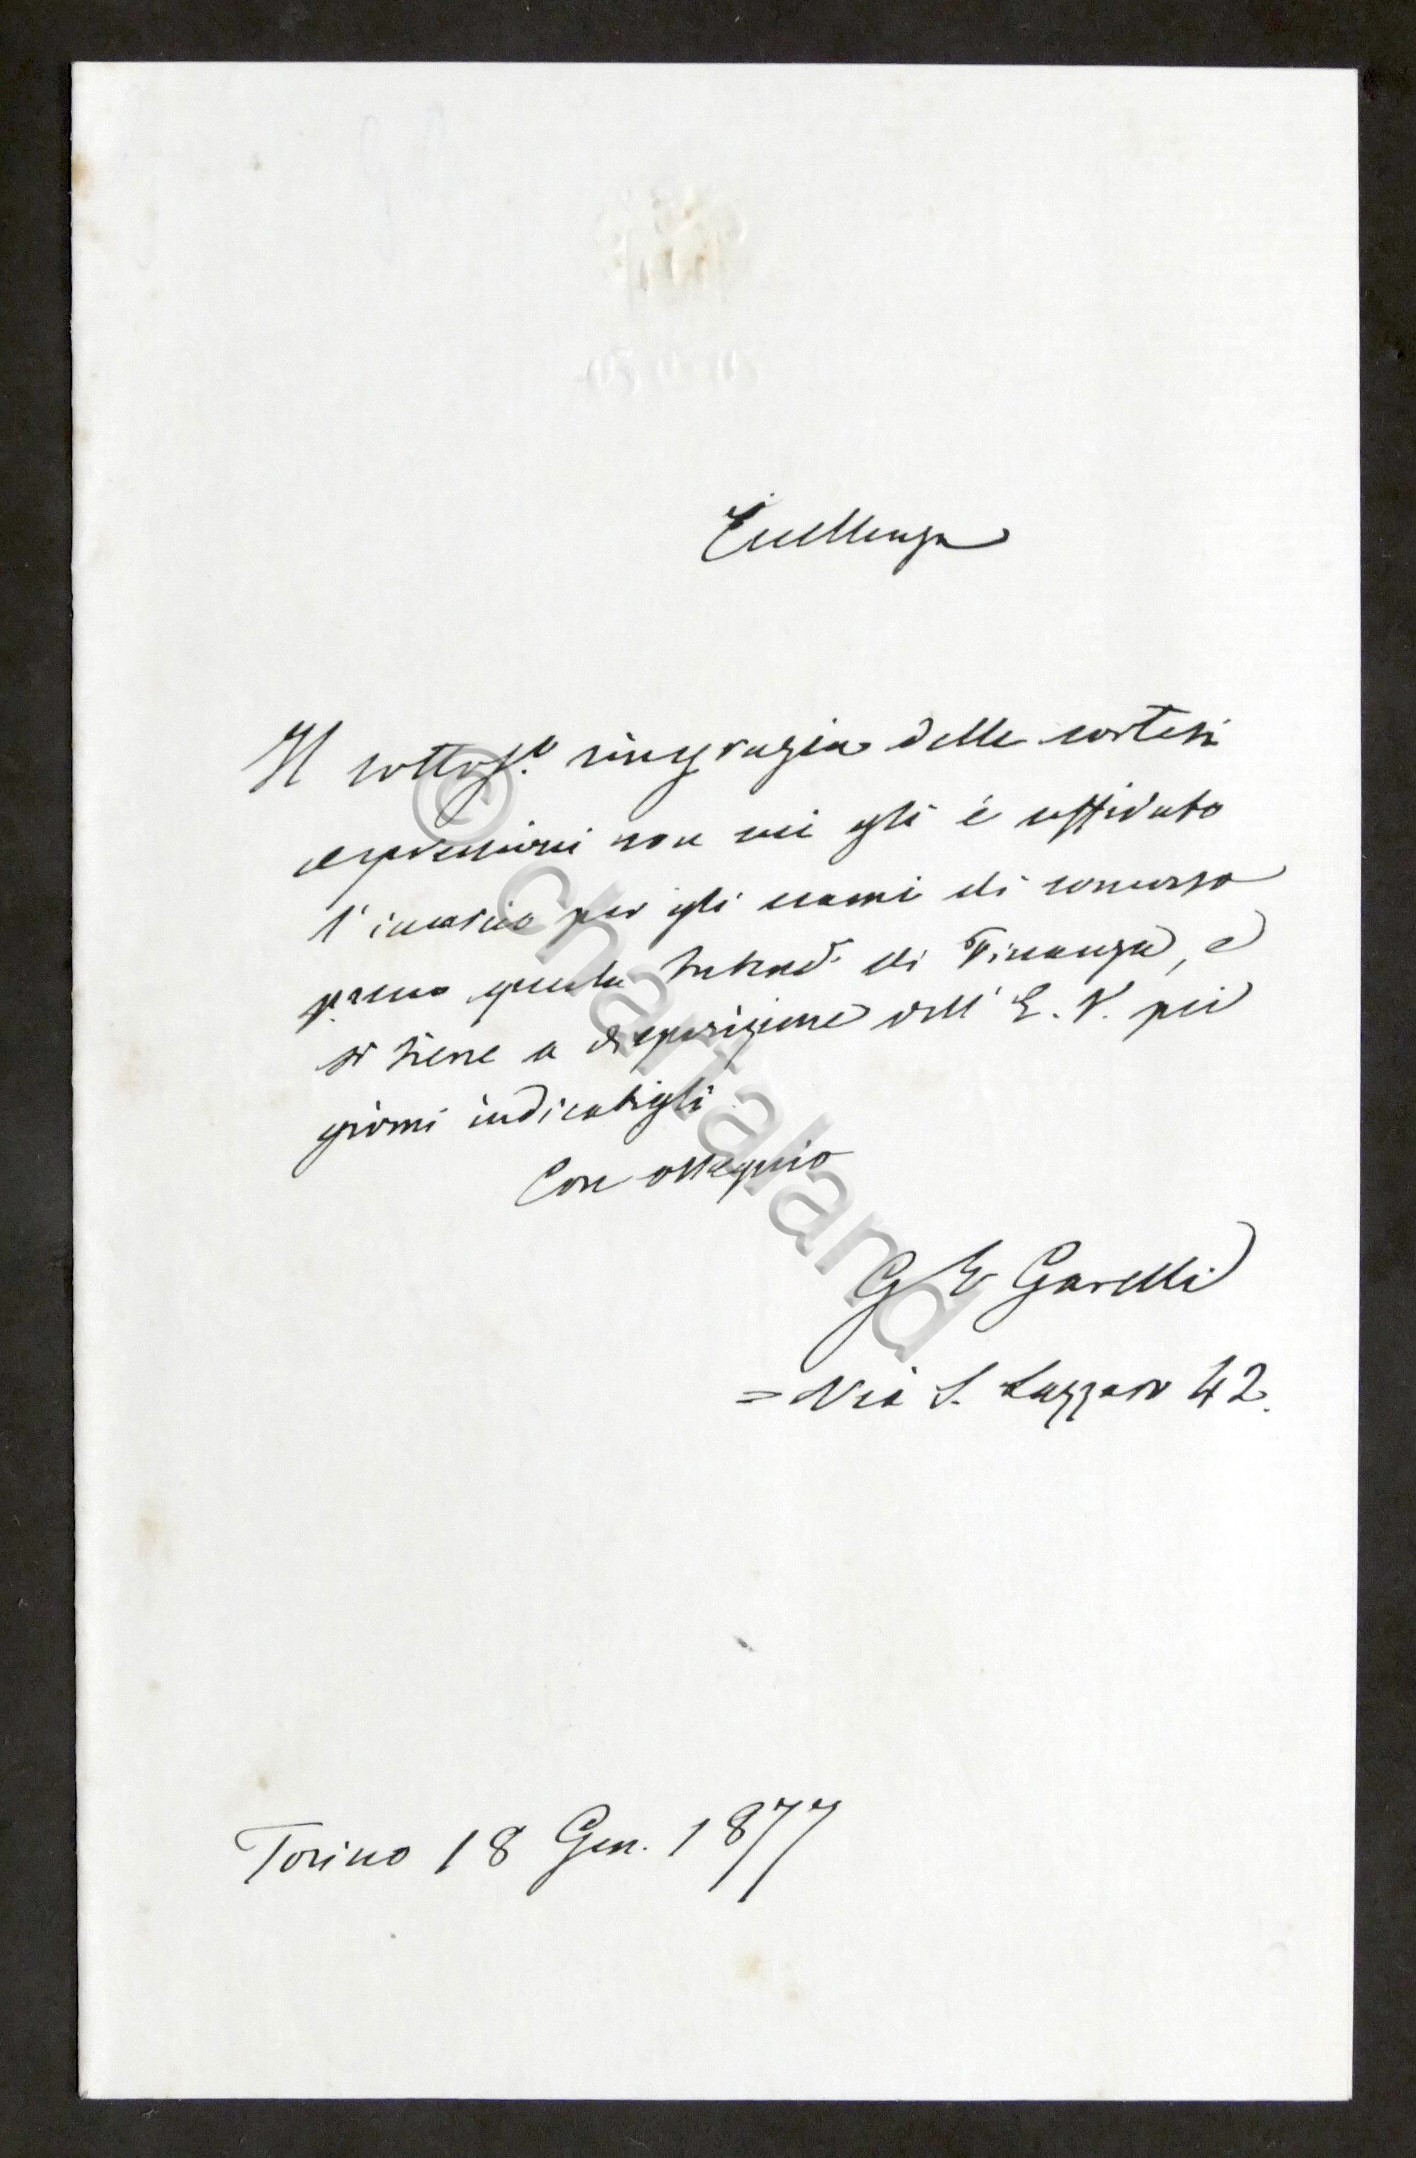 Eccellenza
Il sottos.to ringrazia delle cortesi
espressioni con cui gli è affidato
l'incarico per gli esami di concorso
presso questa Intend. di Finanza, e
si tiene a disposizione dell' E. V. pei
giorni indicatigli.
Con ossequio
G E Garelli
= Via S. Lazzaro 42.
Torino 18 Gen. 1877
© chartaland